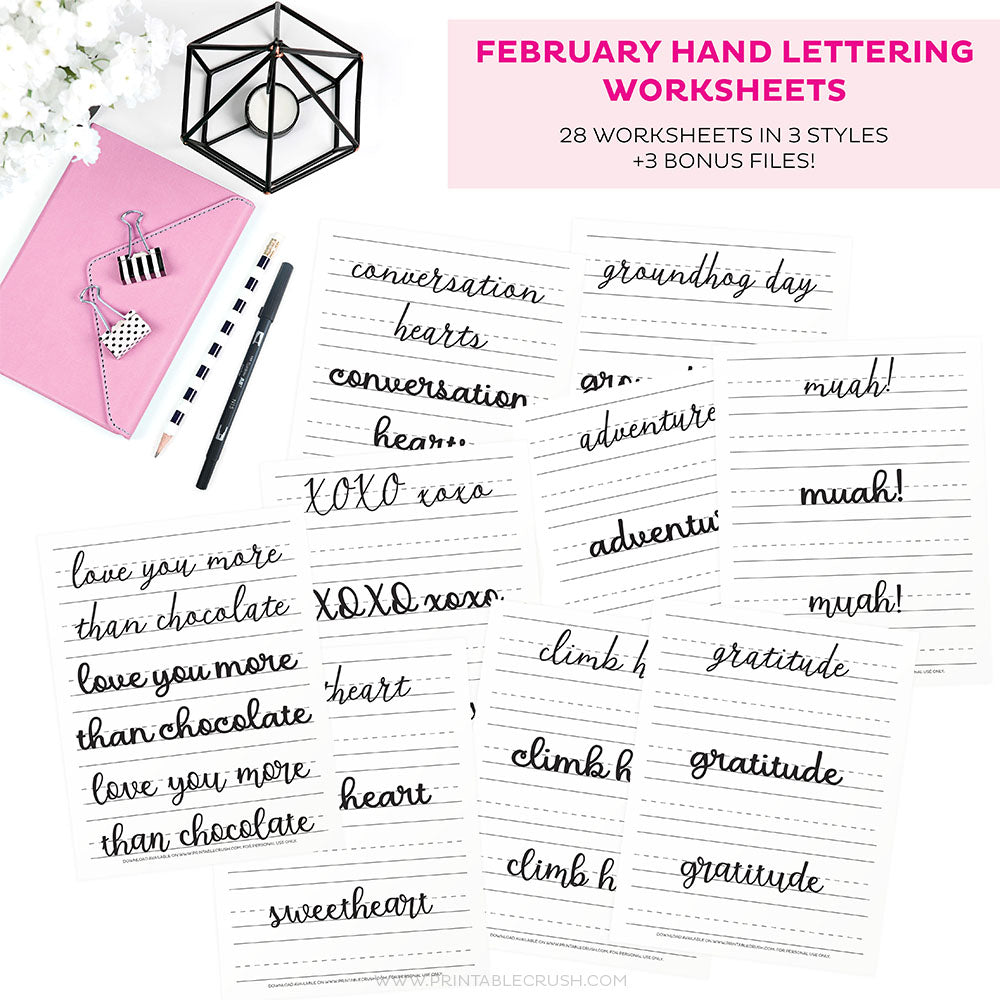 FEBRUARY HAND LETTERING
WORKSHEETS
28 WORKSHEETS IN 3 STYLES
+3 BONUS FILES!
conversation
hearts
conversation
groundhog day
adventure
muah!
muah!
muah!
DOWNLOAD AVAILABLE ON WWW.PRINTABLECRUSH.COM. FOR PERSONAL USE ONLY.
XOXO xoxo
XOXO xoxo
love you more
than chocolate
love you more
than chocolate
love you more
than chocolate
DOWNLOAD AVAILABLE ON WWW.PRINTABLECRUSH.COM. FOR PERSONAL USE ONLY.
heart
heart
sweetheart
DOWNLOAD AVAILABLE ON WWW.PRINTABLECRUSH.COM. FOR PERSONAL USE ONLY.
climb h
climb h
climb h
DOWNLOAD AVAILABLE ON WWW.PRINTABLECRUSH.COM. FOR PERSONAL USE ONLY.
gratitude
gratitude
gratitude
DOWNLOAD AVAILABLE ON WWW.PRINTABLECRUSH.COM. FOR PERSONAL USE ONLY.
WWW.PRINTABLECRUSH.COM